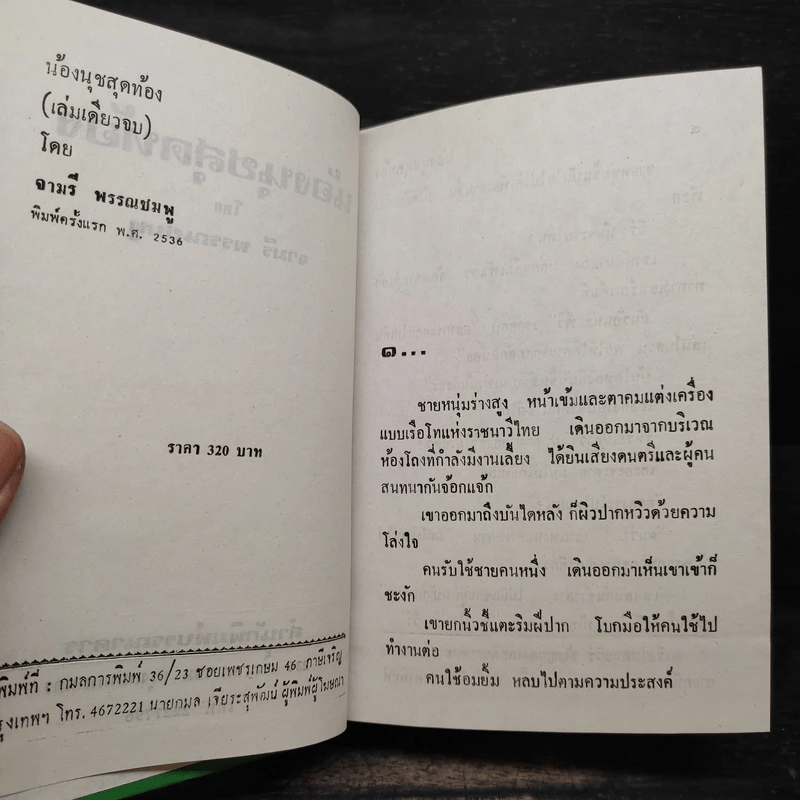 น้องนุชสุดท้อง
(เล่มเดียวจบ)
โดย
จามรี พรรณชมพู
พิมพ์ครั้งแรก พ.ศ. 2536
ราคา 320 บาท
พิมพ์ที่ : กมลการพิมพ์ 36/23 ซอยเพชรเกษม 46 ภาษีเจริญ
กรุงเทพฯ โทร. 4672221 นายกมล เจียระสุพัฒน์ ผู้พิมพ์ผู้โฆษณา
๑...
ชายหนุ่มร่างสูง หน้าเข้มและตาคมแต่งเครื่อง
แบบเรือโทแห่งราชนาวีไทย เดินออกมาจากบริเวณ
ห้องโถงที่กำลังมีงานเลี้ยง ได้ยินเสียงดนตรีและผู้คน
สนทนากันจ้อกแจ้ก
เขาออกมาถึงบันไดหลัง ก็ผิวปากหวิวด้วยความ
โล่งใจ
คนรับใช้ชายคนหนึ่ง เดินออกมาเห็นเขาเข้าก็
ชะงัก
เขายกนิ้วชี้แตะริมฝีปาก โบกมือให้คนใช้ไป
ทำงานต่อ
คนใช้อมยิ้ม หลบไปตามความประสงค์